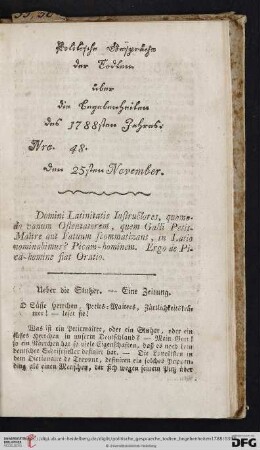 Politische Gespräche
der Todten
über
die Begebenheiten
des 1788sten Jahres.
Nro. 48.
den 25sten November.
Domini Latinitatis Instructores, quomo-
do vanum Ostentatorem, quem Galli Petit-
Maitre aut Fatuum stommatizant, in Latio
nominabimus? Picam-hominem. Ergo de Pi-
ca-homine fiat Oratio.
Ueber die Stutzer. — Eine Zeitung.
O Süße Herrchen, Petits-Maitres, Zärtlichkeitskrä-
mer! — leset sie!
Was ist ein Petitmaitre, oder ein Stutzer, oder ein
süßes Herrchen in unserm Deutschland? — Mein Gott!
so ein Närrchen hat so viele Eigenschaften, daß es noch kein
deutscher Schriftsteller definirt hat. — Die Novellisten in
dem Dictionaire de Trevoux, definiren ein solches Püppchen
als einen Menschen, der sich wegen seinem Putz aber
DFG